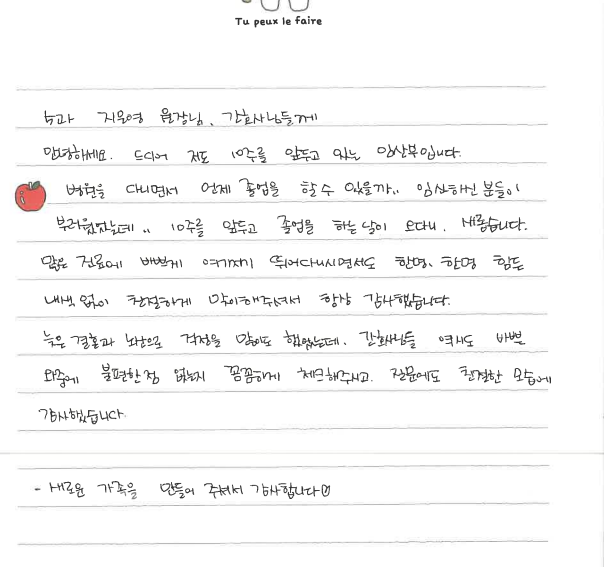 Tu peux le faire
5과 지은영 원장님, 간호사님들께
안녕하세요. 드디어 저도 10주를 앞두고 있는 임산부입니다.
병원을 다니면서 언제 졸업을 할 수 있을까.. 임신하신 분들이
부러웠었는데.. 10주를 앞두고 졸업을 하는 날이 오다니. 새롭습니다.
많은 진료에 바쁘게 여기저기 뛰어다니시면서도 한명, 한명 힘든
내색 없이 친절하게 맞이해주셔서 항상 감사했습니다.
늦은 결혼과 노산으로 걱정을 많이도 했었는데, 간호사님들 역시도 바쁜
와중에 불편한점 없는지 꼼꼼하게 체크해주시고. 질문에도 친절한 모습에
감사했습니다.
- 새로운 가족을 만들어 주셔서 감사합니다♡